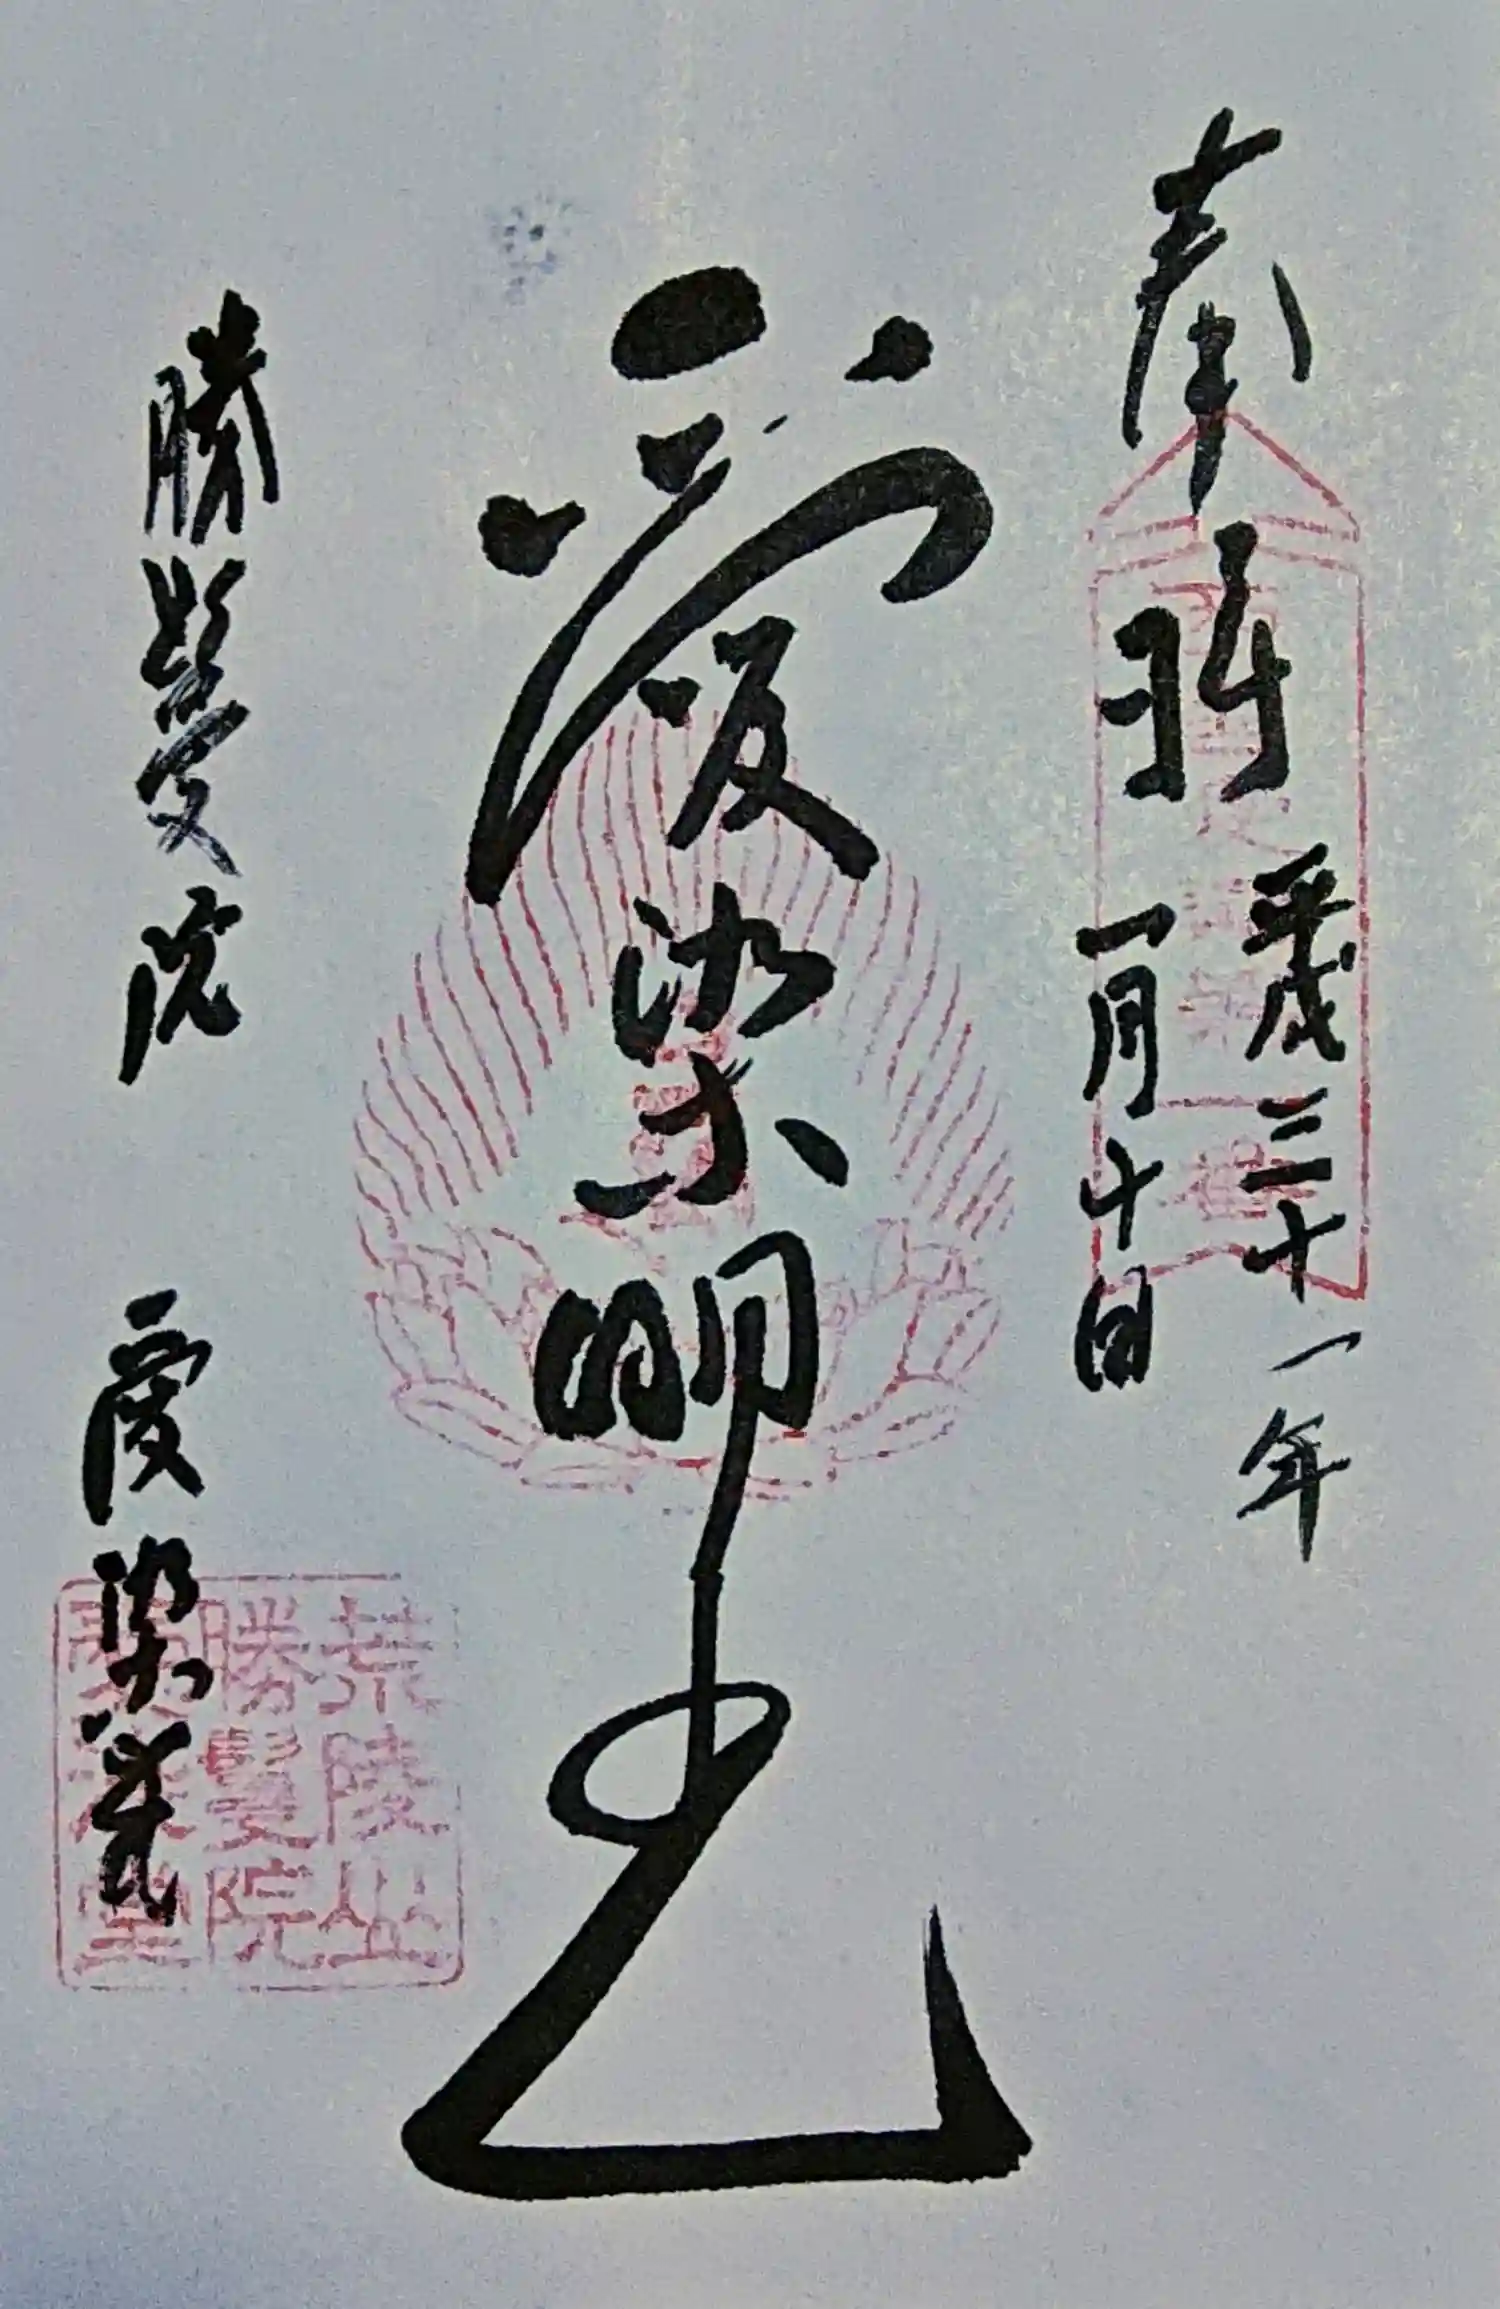 奉拝
平成三十一年
一月十日
愛染明王
勝鬘院 愛染堂
荒陵山
勝鬘院
愛染堂